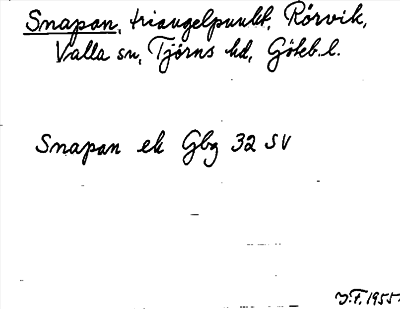 Snapan, triangelpunkt, Rörvik,
Valla sn, Tjörns hd, Göteb. l.
Snapan ek Gbg 32 SV
J.F. 1955.